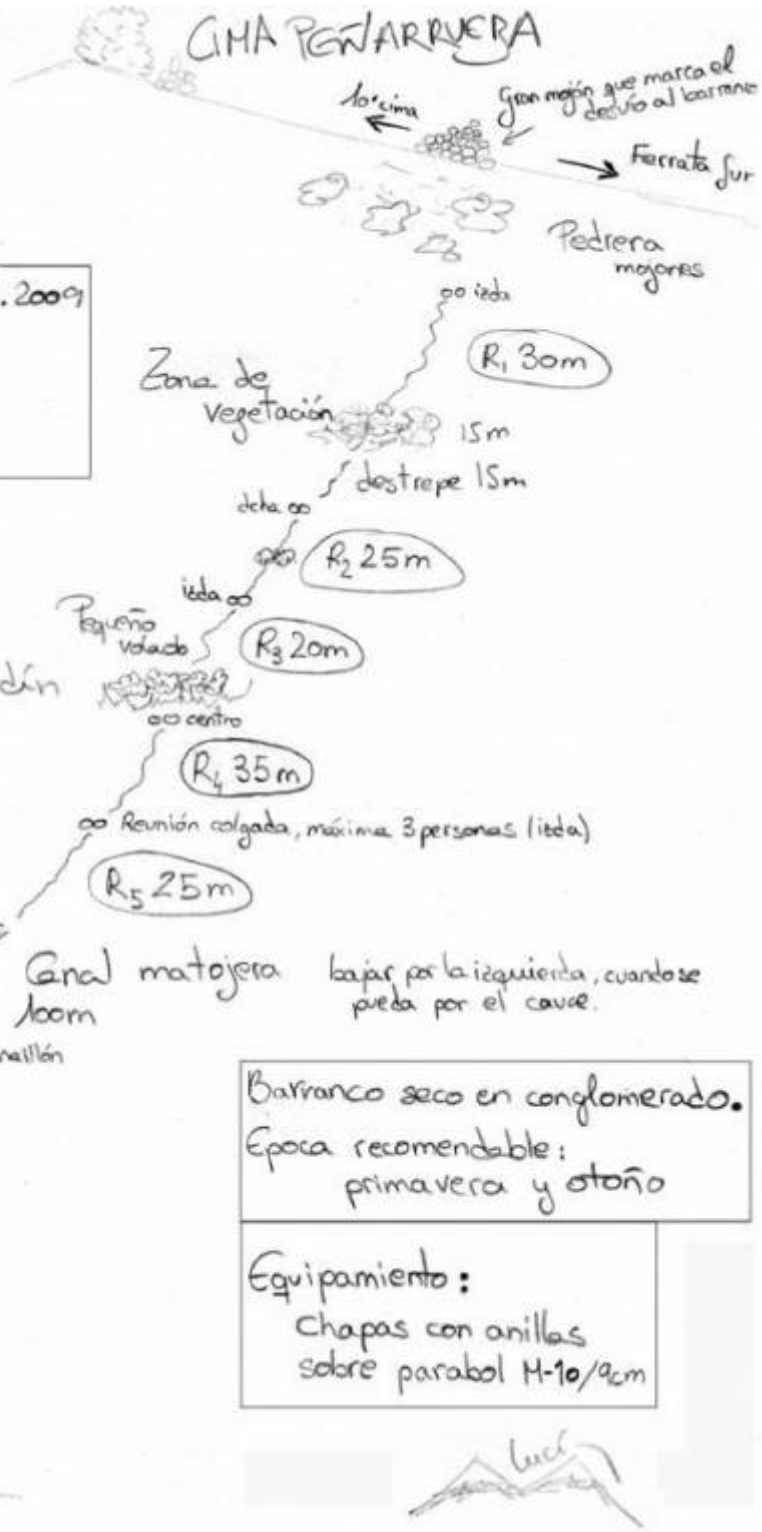 CIMA PEÑARRUEBA
10' cima
Gran mojón que marca el
desvío al barranco
Ferrata Sur
Pedrera
mojones
. 2009
izda
R1 30m
Zona de
vegetación
15m
destrepe 15m
dcha
R2 25m
izda
Pequeño
volado
R3 20m
dín
centro
R4 35m
Reunión colgada, máximo 3 personas (izda)
R5 25m
Canal matojera
100m
bajar por la izquierda, cuando se
pueda por el cauce.
maillón
Barranco seco en conglomerado.
Epoca recomendable:
primavera y otoño
Equipamiento:
Chapas con anillas
sobre parabol M-10/9cm